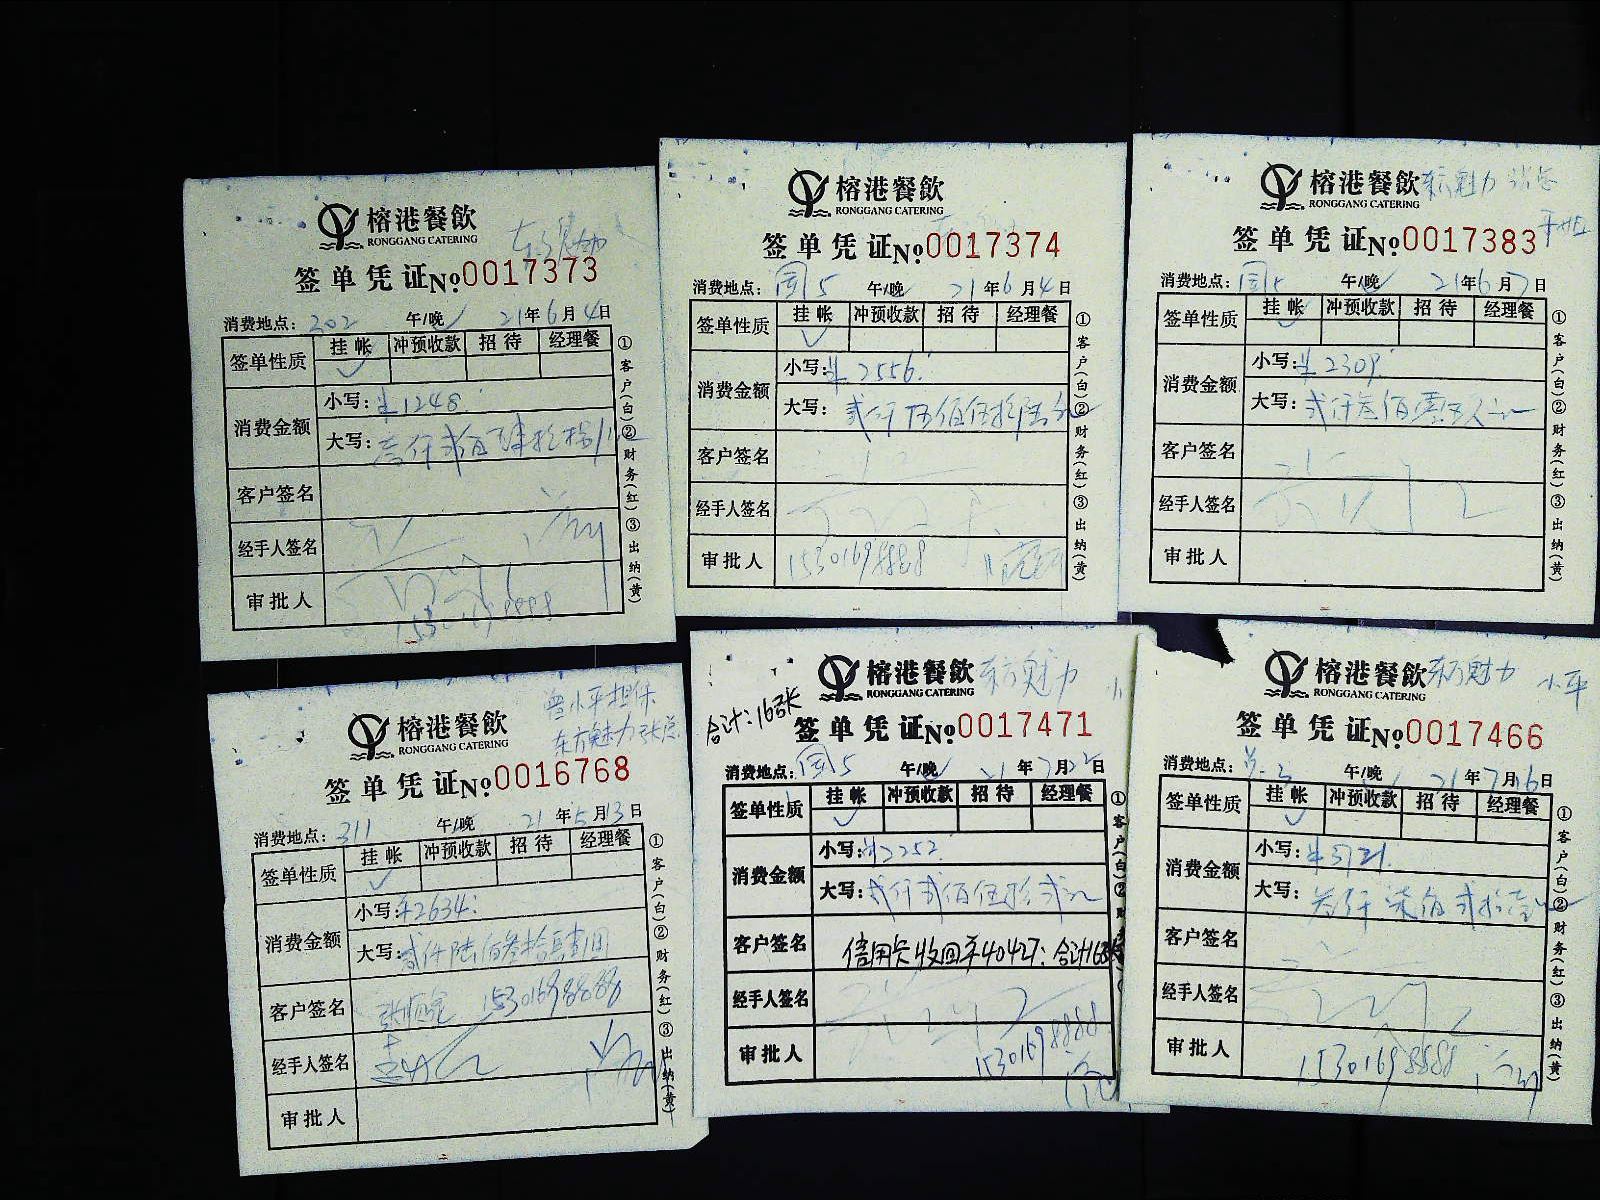 榕港餐飲
RONGGANG CATERING
签单凭证No.0017373
消费地点：202 午/晚 21年6月4日
签单性质 挂帐 冲预收款 招待 经理餐
消费金额
小写：¥1248
大写：
客户签名
经手人签名
审批人
①客户(白)②财务(红)③出纳(黄)
榕港餐飲
RONGGANG CATERING
签单凭证No.0017374
消费地点：国5 午/晚 21年6月4日
签单性质 挂帐 冲预收款 招待 经理餐
消费金额
小写：¥2556
大写：贰仟伍佰伍拾陆元
客户签名
经手人签名
审批人 15301698888
①客户(白)②财务(红)③出纳(黄)
榕港餐飲
东方魅力
RONGGANG CATERING
签单凭证No.0017383
消费地点：国5 午/晚 21年6月7日
签单性质 挂帐 冲预收款 招待 经理餐
消费金额
小写：¥2309
大写：贰仟叁佰零玖元
客户签名
经手人签名
审批人
①客户(白)②财务(红)③出纳(黄)
曾小平担保
东方魅力张总
榕港餐飲
RONGGANG CATERING
签单凭证No.0016768
消费地点：311 午/晚 21年5月13日
签单性质 挂帐 冲预收款 招待 经理餐
消费金额
小写：¥2634
大写：贰仟陆佰叁拾肆圆
客户签名 15301698888
经手人签名
审批人
①客户(白)②财务(红)③出纳(黄)
榕港餐飲
东方魅力
RONGGANG CATERING
合计：16张
签单凭证No.0017471
消费地点：国5 午/晚 21年7月22日
签单性质 挂帐 冲预收款 招待 经理餐
消费金额
小写：¥2252
大写：贰仟贰佰伍拾贰元
客户签名 信用卡收回¥40427：合计16张
经手人签名
审批人 15301698888
榕港餐飲
东方魅力
小平
RONGGANG CATERING
签单凭证No.0017466
消费地点： 午/晚 21年7月16日
签单性质 挂帐 冲预收款 招待 经理餐
消费金额
小写：
大写：
客户签名
经手人签名
审批人 15301698888
①客户(白)②财务(红)③出纳(黄)